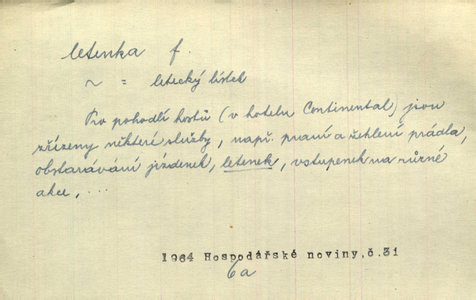 letenka f.
~ = letecký lístek
Pro pohodlí hostů (v hotelu Continental) jsou
zřízeny některé služby, např. praní a žehlení prádla,
obstarávání jízdenek, letenek, vstupenek na různé
akce, ...
1964 Hospodářské noviny, č.31
6a